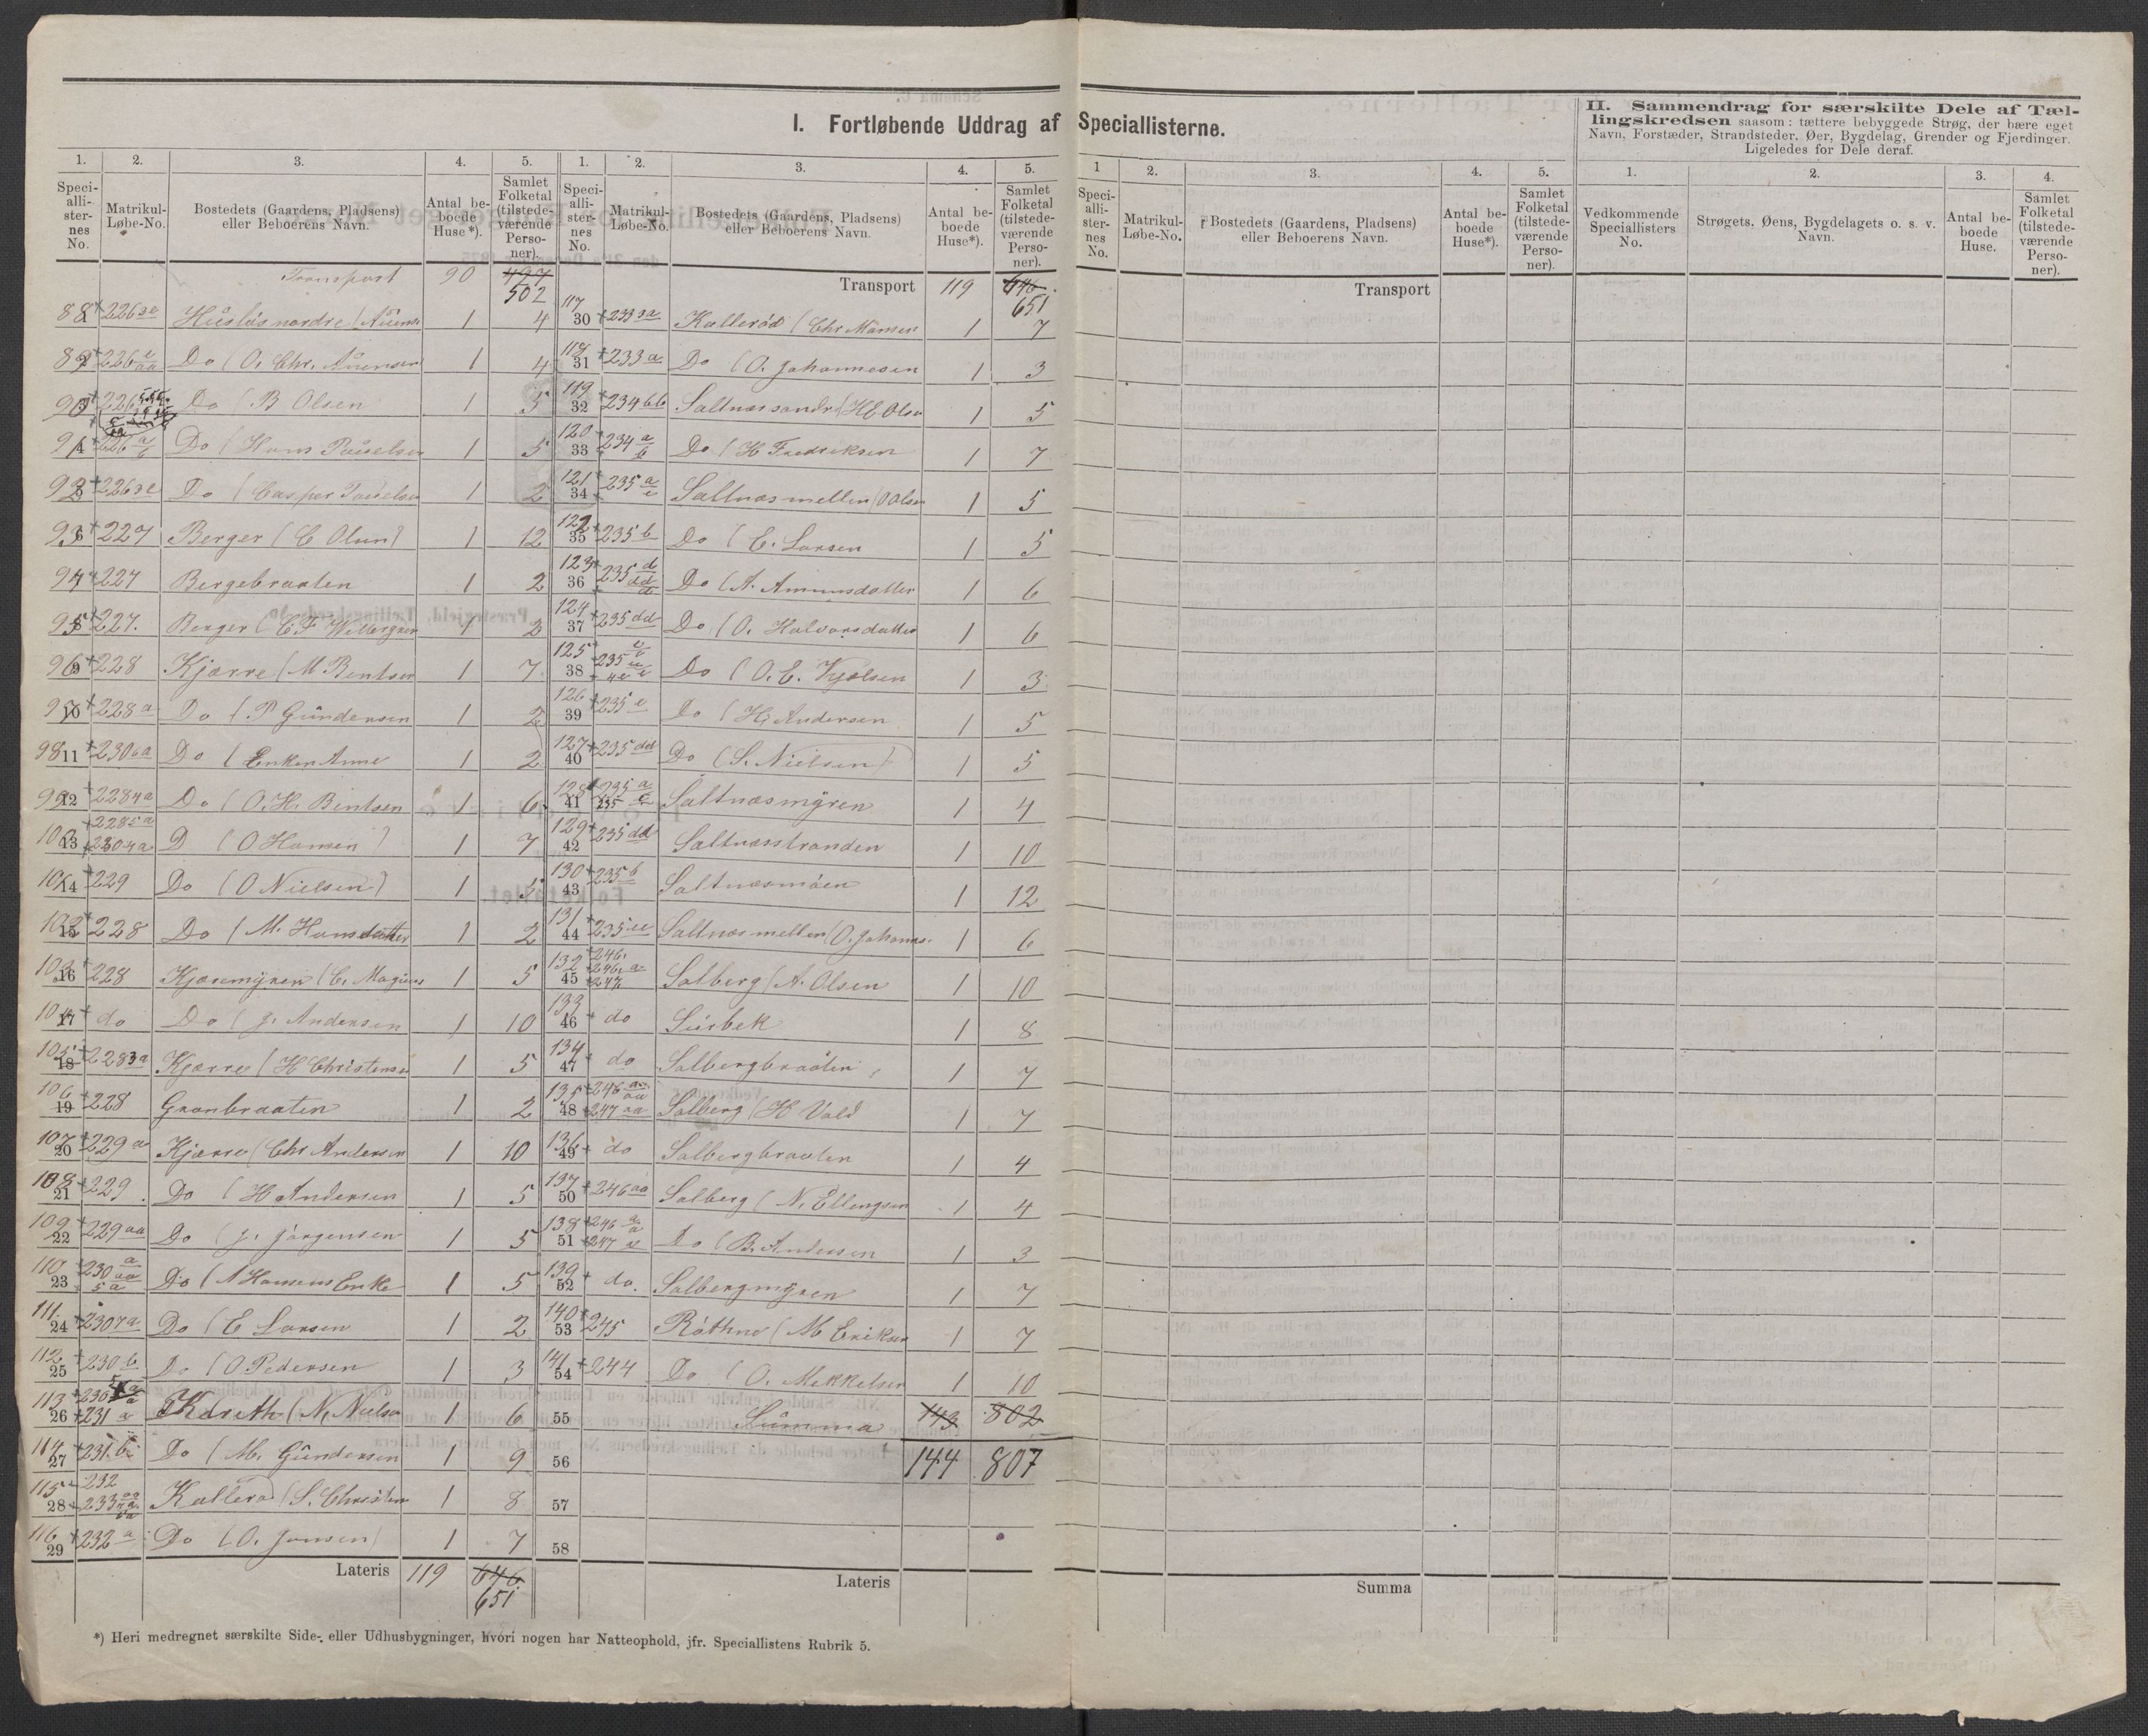 I. Fortløbende Uddrag af Speciallisterne.
II. Sammendrag for særskilte Dele af Tæl-
lingskredsen saasom: tættere bebyggede Strøg, der bære eget
Navn, Forstæder, Strandsteder, Øer, Bygdelag, Grender og Fjerdinger.
Ligeledes for Dele deraf.
1. 2. 3. 4. 5.
Speci-alli-ster-nes No. Matrikul-Løbe-No. Bostedets (Gaardens, Pladsens) eller Beboerens Navn. Antal be-boede Huse*). Samlet Folketal (tilstede-værende Perso-ner).
Transport 90 497
502
88 226 Huslös nordre 1 4
89 226 Do (O. Chr. 1 4
90 226 Do (B Olsen 1 5
91 226 Do (Hans 1 5
92 226 Do (Casper 1 2
93 227 Berger (C Olun) 1 12
94 227 Bergebraaten 1 2
95 227. Berger (C.F. 1 2
96 228 Kjærre (M. Bentsen 1 7
97 228 a Do (P Gundersen 1 2
98 230 6a Do (Enken Anne 1 2
99 228 4a Do (O. H. Bentsen 1 6
100 228 5a
230 4a D (O Hansen) 1 7
101 229 Do (O Nielsen) 1 5
102 228 Do (M. Hansdatter 1 2
103 228 Kjæremyren (C. 1 5
104 do Do (J. Andersen 1 10
105 228 3a Kjærre (H Christensen 1 5
106 228 Granbraaten 1 2
107 229 a Kjærre (Chr Andersen 1 10
108 229 Do (H Andersen 1 5
109 229 aa Do (J. Jörgensen 1 5
110 230 Do (N Hansens Enke 1 5
111. 230 7a Do (E Larsen 1 2
112 230 b Do (O Pedersen 1 3
113 230
231 a (N. Nielsen 1 6
114 231 b. Do (M. Gundersen 1 9
115 232
233 Kallerö (S. 1 8
116 232 a Do (O. Jensen) 1 7
Lateris 119 646
651
1. 2. 3. 4. 5.
Speci-alli-ster-nes No. Matrikul-Løbe-No. Bostedets (Gaardens, Pladsens) eller Beboerens Navn. Antal be-boede Huse*). Samlet Folketal (tilstede-værende Perso-ner).
Transport 119 646
651
117 30 233 Kalleröd (Chr 1 7
118 31 233 a Do (O. Johannesen 1 3
119 32 234 bb Saltnæs söndr (H E Olsen 1 5
120 33 234 Do (H Fredriksen 1 7
121 34 235 Saltnæs mellem (O Olsen 1 5
122 35 235 b Do (C. Larsen 1 5
123 36 235 Do (A. Amundsdatter 1 6
124 37 235 dd Do (O. Halvorsdatter 1 6
125 38 235 Do (O. E. 1 3
126 39 235 e Do (H. Andersen 1 5
127 40 235 dd Do (S. Nielsen) 1 5
128 41 235 Saltnæsmyren 1 4
129 42 235 dd Saltnæsstranden 1 10
130 43 235 b Saltnæsmoen 1 12
131 44 235 Saltnæs mellem (O. 1 6
132 45 246.
246. a
247. Solberg (A. Olsen 1 10
133 46 do Surbek 1 8
134 47 do Solbergbraaten 1 7
135 48 246
247 aa Solberg (H Vold 1 7
136 49 do Solbergbraaten 1 4
137 50 246 aa Solberg (N. Ellingsen 1 4
138 51 246
247 Do (B. Andersen 1 3
139 52 do. Solbergmyren 1 7
140 53 245 Råthne (M Eriksen 1 7
141 54 244 Do (O. Mikkelsen 1 10
55 Summa 143 802
56 144 807
57
58
Lateris
1 2. 3. 4. 5.
Speci-alli-ster-nes No. Matrikul-Løbe-No. Bostedets (Gaardens, Pladsens) eller Beboerens Navn. Antal be-boede Huse*). Samlet Folketal (tilstede-værende Perso-ner).
Transport
Summa
1. 2. 3. 4.
Vedkommende Speciallisters No. Strøgets, Øens, Bygdelagets o. s. v. Navn. Antal be-boede Huse. Samlet Folketal (tilstede-værende Perso-ner).
*) Heri medregnet særskilte Side- eller Udhusbygninger, hvori nogen har Natteophold, jfr. Speciallistens Rubrik 5.